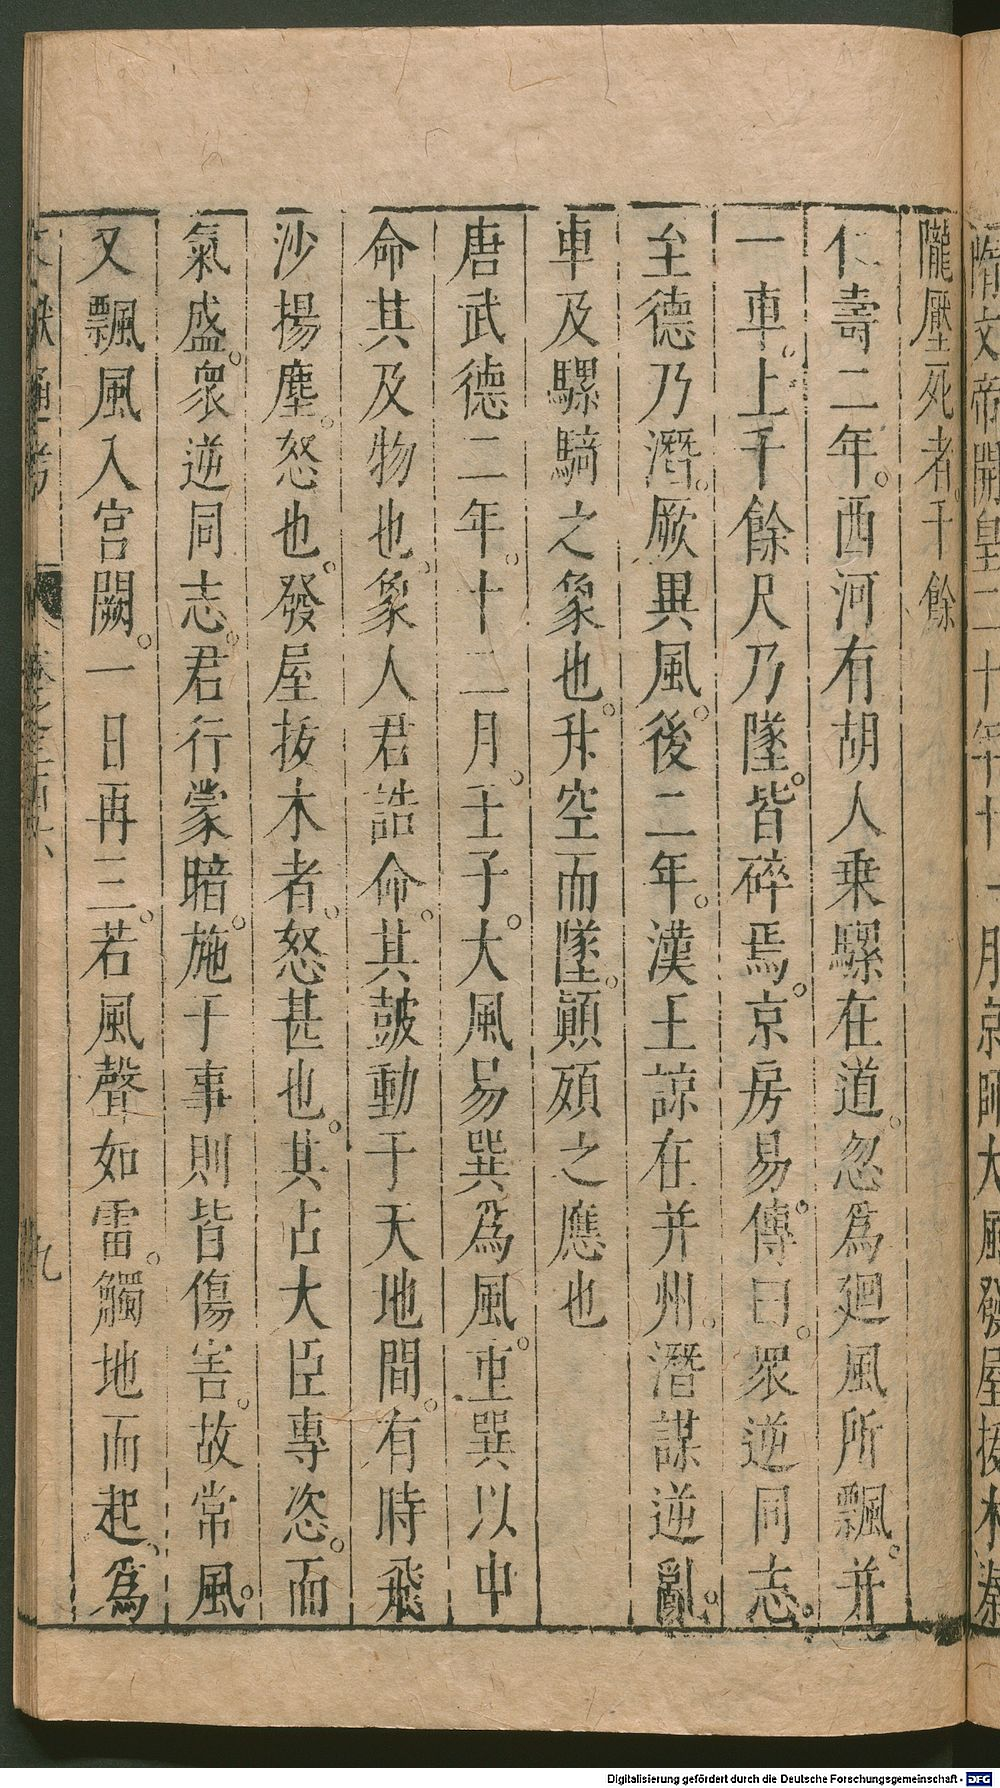 隋文帝開皇二十年十一月京師大風發屋拔木秦
隴壓死者。千餘
仁壽二年。西河有胡人乗騾在道。忽爲廻風所飄。并
一車。上千餘尺乃墜。皆碎焉。京房易傳曰。衆逆同志。
至德乃潛。厥異風。後二年。漢王諒在并州。潛謀逆亂。
車及騾騎之象也。升空而墜。顚殞之應也
唐武德二年。十二月。壬子。大風易巽爲風。重巽以申
命其及物也。象人君誥命。其鼓動于天地間。有時飛
沙揚塵。怒也。發屋拔木者。怒甚也。其占大臣專恣。而
氣盛。衆逆同志。君行蒙暗。施于事則皆傷害。故常風。
又飄風入宮闕。一日再三。若風聲如雷。觸地而起。爲
獻通考
九
Digitalisierung gefördert durch die Deutsche Forschungsgemeinschaft - DFG